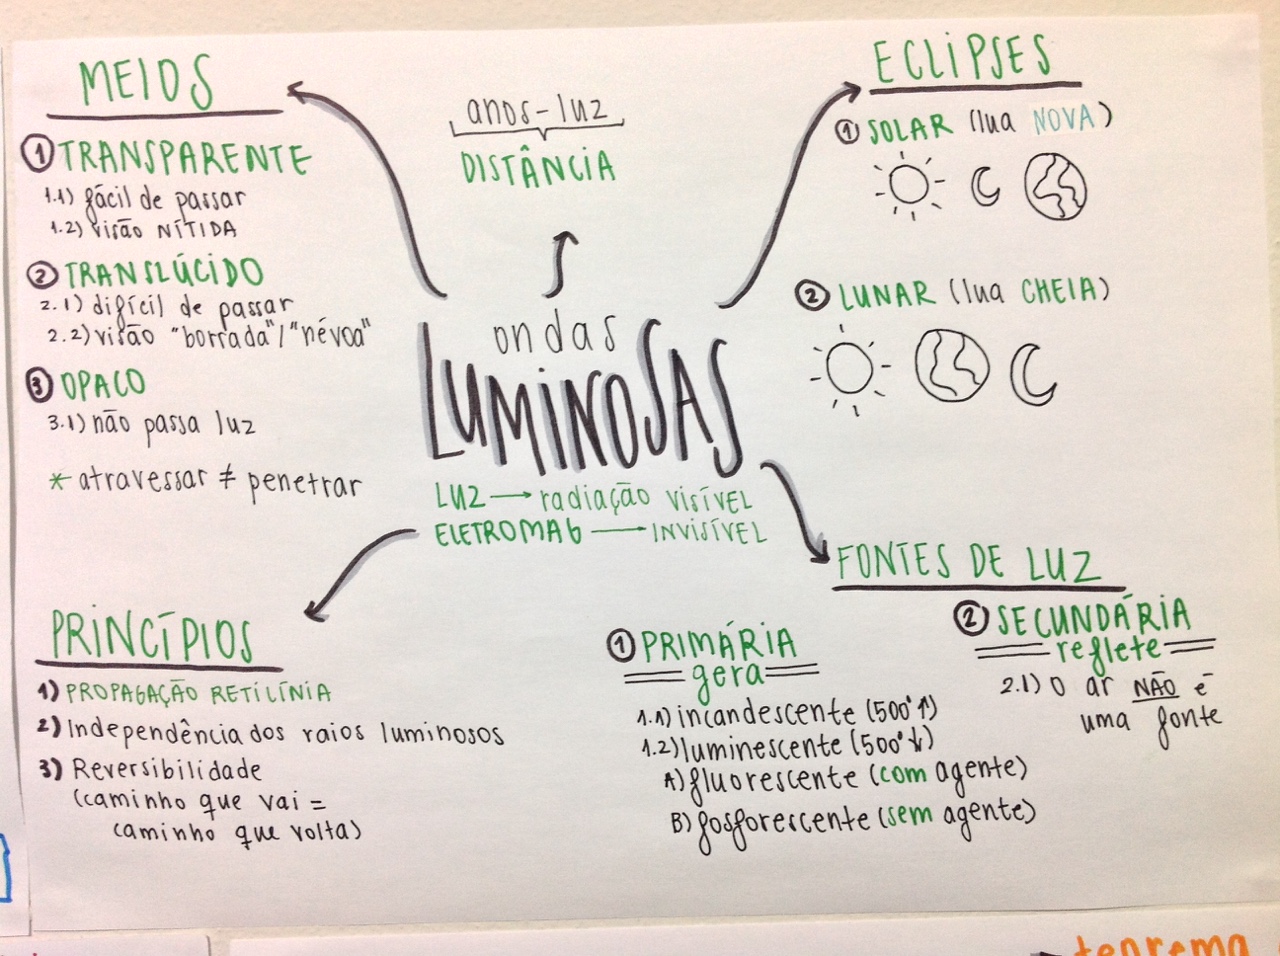 MEIOS
① TRANSPARENTE
1.1) fácil de passar
1.2) visão NÍTIDA
② TRANSLÚCIDO
2.1) difícil de passar
2.2) visão "borrada"/"névoa"
③ OPACO
3.1) não passa luz
* atravessar ≠ penetrar
anos-luz
DISTÂNCIA
ECLIPSES
① SOLAR (lua NOVA)
② LUNAR (lua CHEIA)
ondas
LUMINOSAS
LUZ → radiação VISÍVEL
ELETROMAG → INVISÍVEL
PRINCÍPIOS
1) PROPAGAÇÃO RETILÍNIA
2) Independência dos raios luminosos
3) Reversibilidade
(caminho que vai =
caminho que volta)
FONTES DE LUZ
① PRIMÁRIA
gera
1.1) incandescente (500°↑)
1.2) luminescente (500°↓)
A) fluorescente (com agente)
B) fosforescente (sem agente)
② SECUNDÁRIA
reflete
2.1) O ar NÃO é
uma fonte
teorema